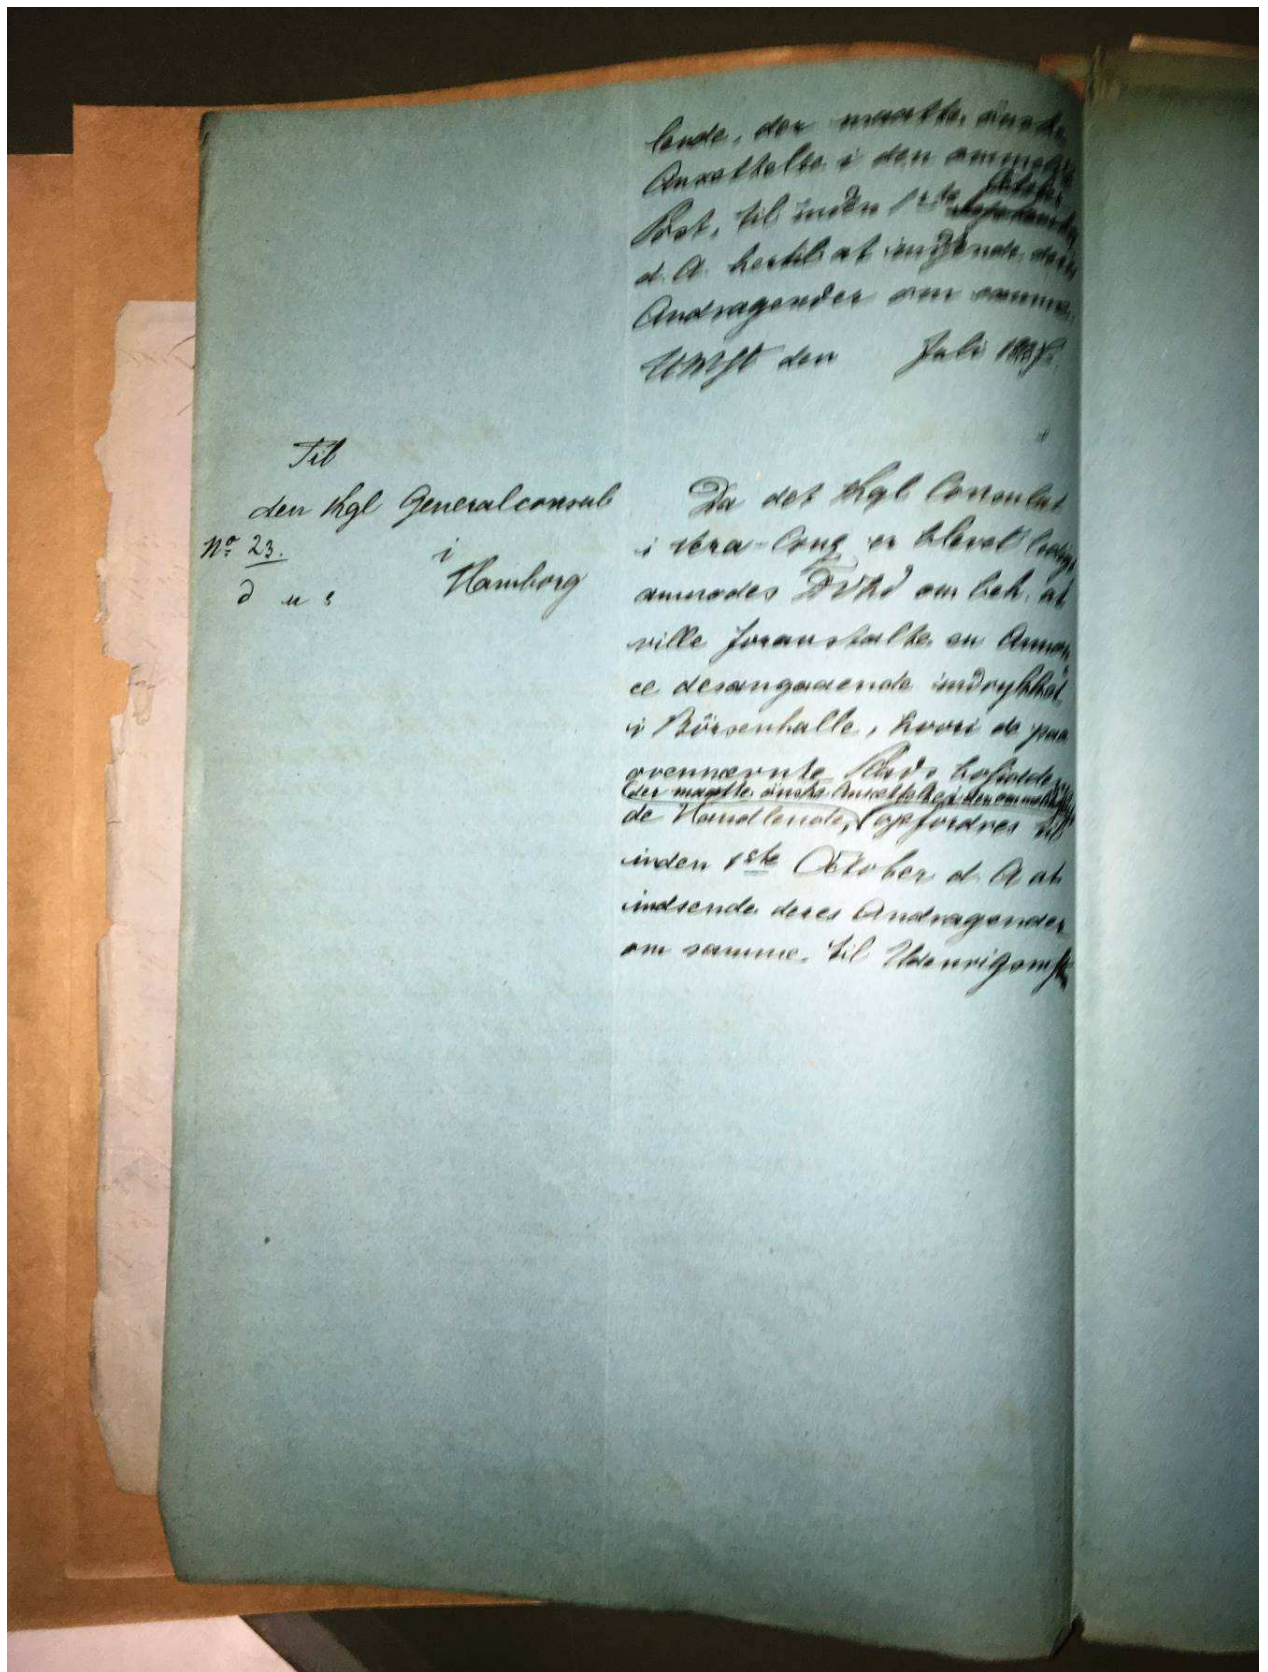 lende, der maatte ønske
Ansættelse i den ommeldte
Post, til inden 1ste October
d. A. hertil at indsende deres
Andragender om samme.
UMst den Juli
Til
den Kgl Generalconsul
i
Hamborg
No 23.
D u s
Da det Kgl Consulat
i Vera-Cruz er blevet ledigt
anmodes DVHd om beh. at
ville foranstalte en Annon
ce desangaaende indrykket
i Börsenhalle, hvori de paa
ovennævnte Plads bosidden
der maatte ønske Ansættelse i den ommeldte
de Handlende, opfordres til
inden 1ste October d. A at
indsende deres Andragender
om samme, til Udenrigsmst